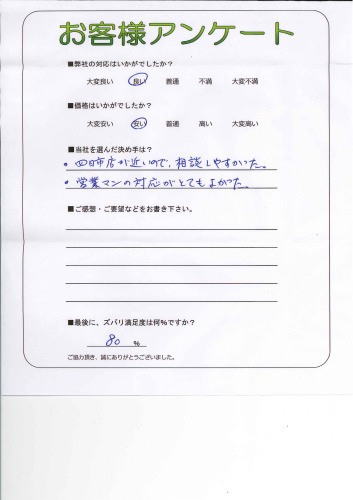 お客様アンケート
■弊社の対応はいかがでしたか?
大変良い 良い 普通 不満 大変不満
■価格はいかがでしたか?
大変安い 安い 普通 高い 大変高い
■当社を選んだ決め手は?
・四日市店が近いので、相談しやすかった。
・営業マンの対応がとてもよかった。
■ご感想・ご要望などをお書き下さい。
■最後に、ズバリ満足度は何%ですか?
80 %
ご協力頂き、誠にありがとうございました。